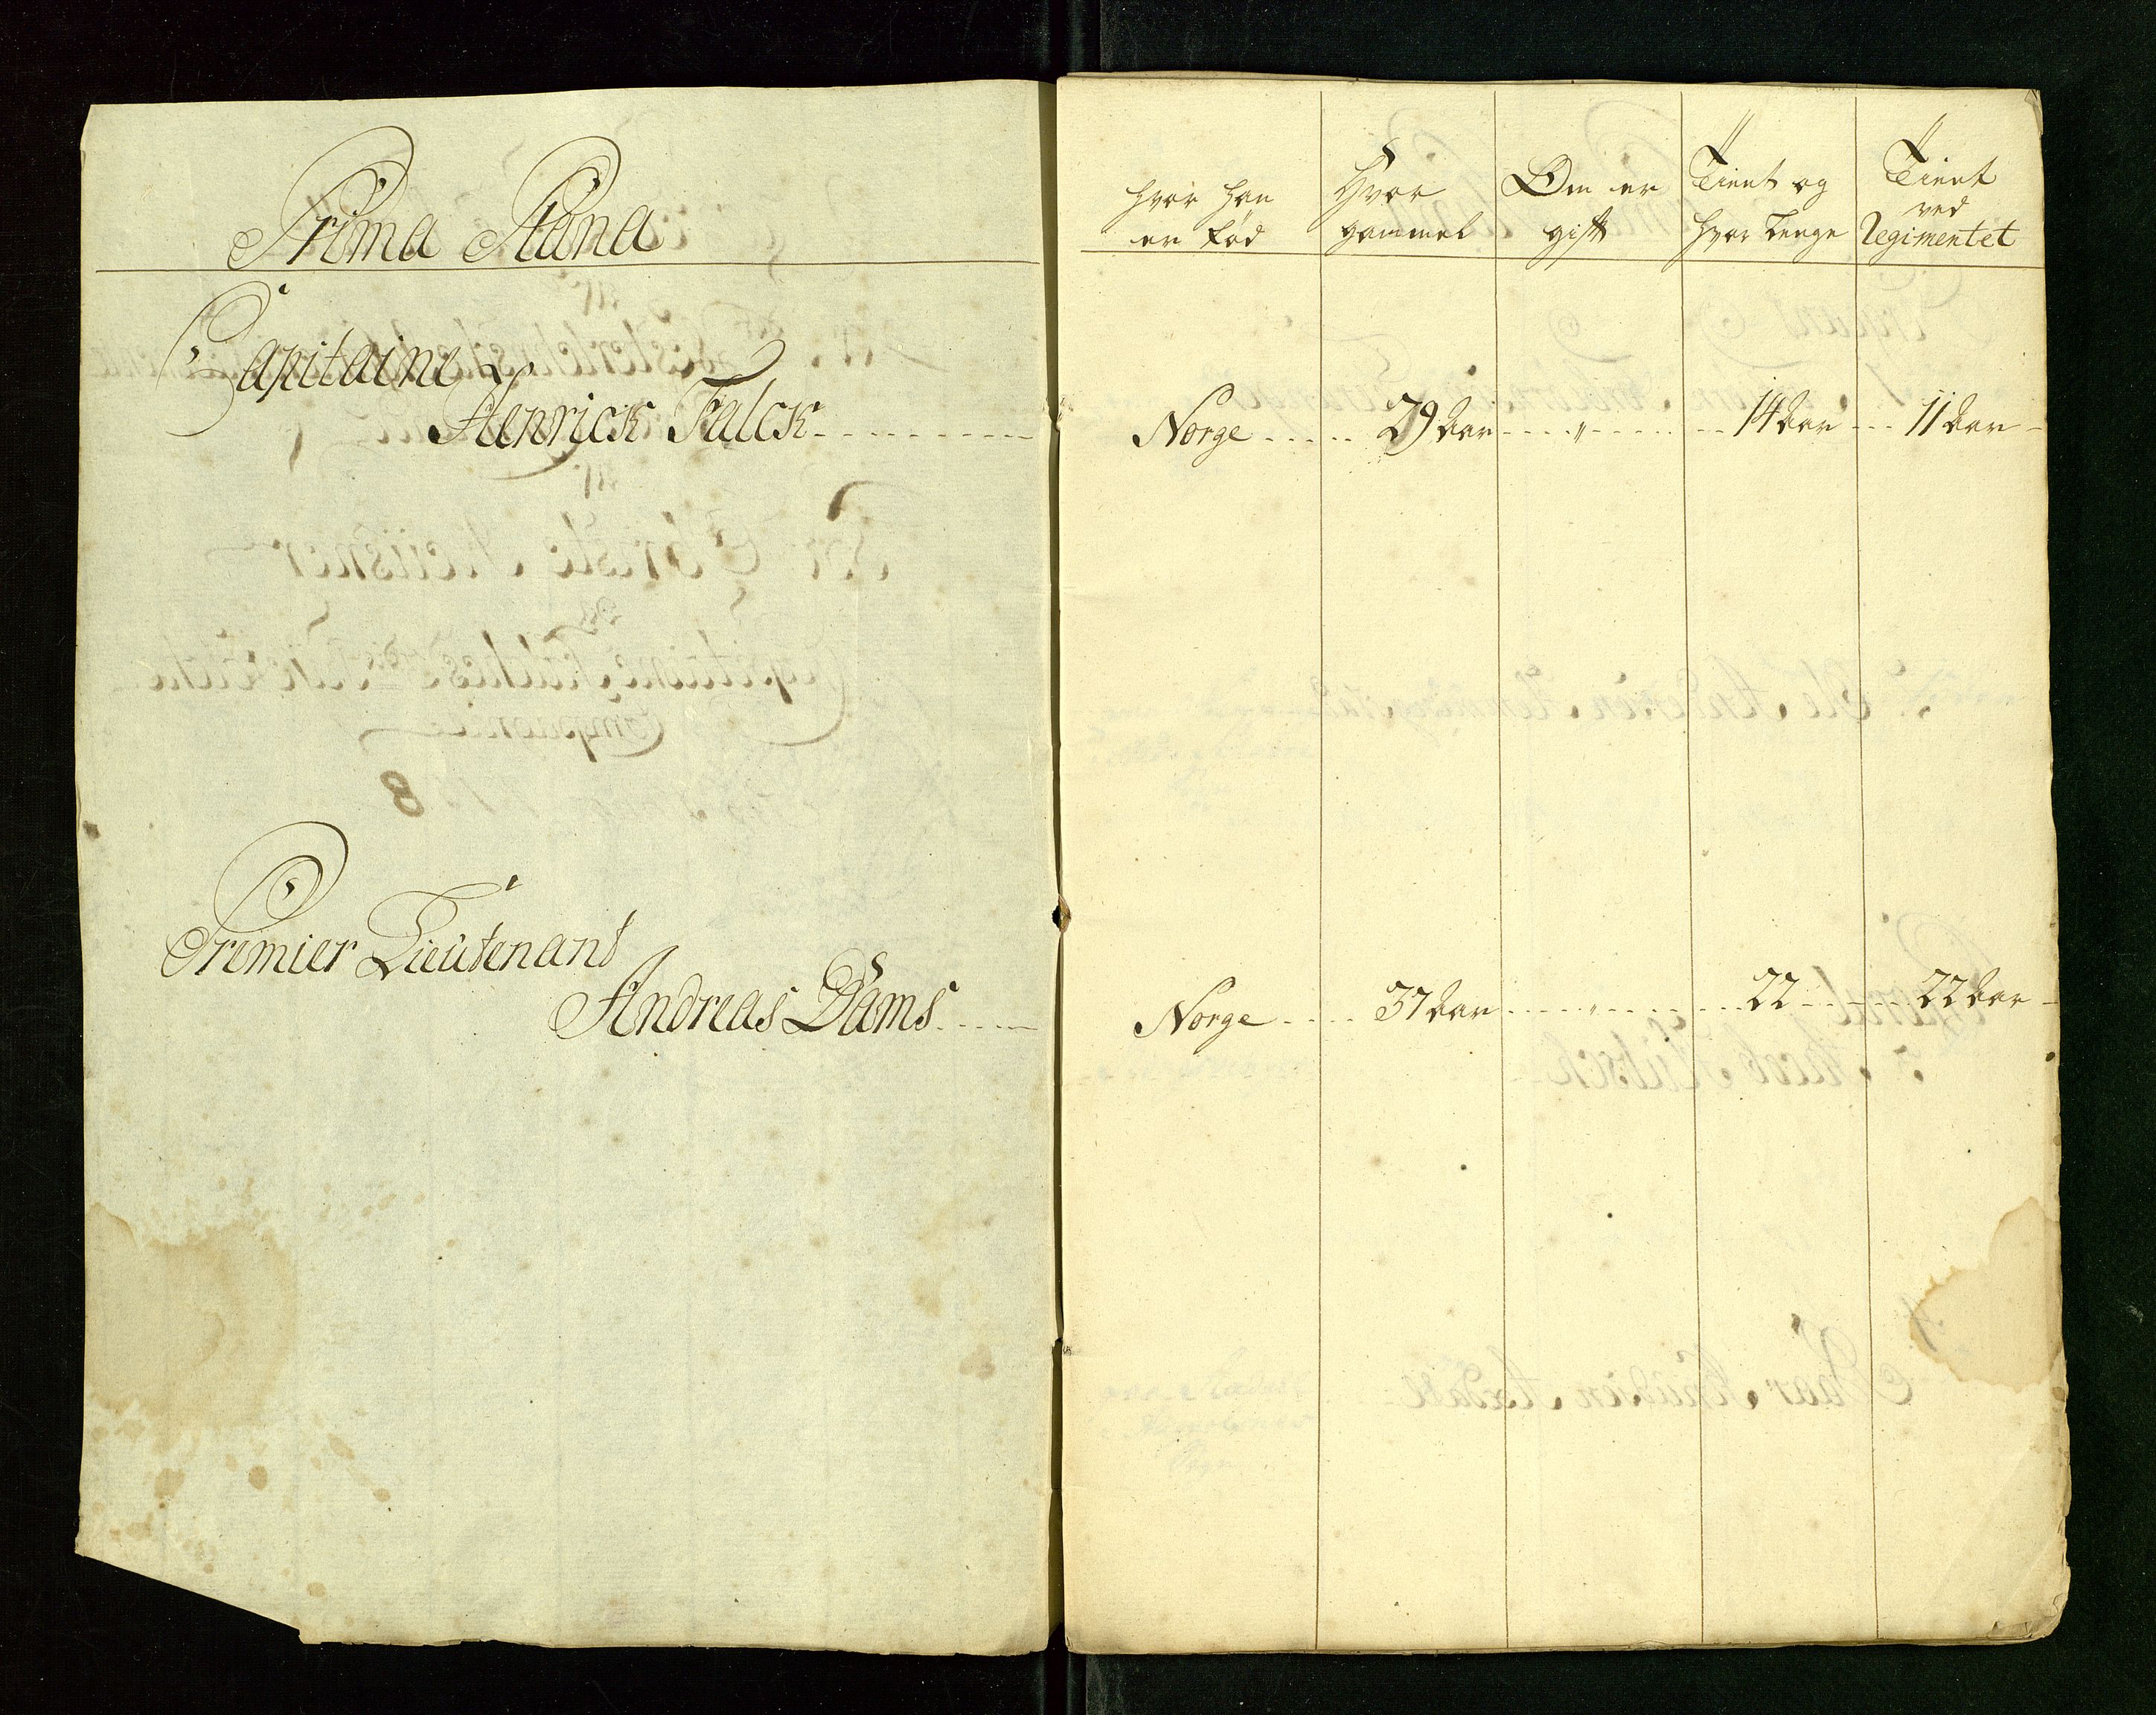 Prima Plana
Capitaine
Henrick Falck
Premier Lieütenant
Andreas Dams
hvor han er fød
Hvor gammel
Om er gift
Tient og hvor Lenge
Tient ved Regimentet
Norge 29 aar " 14 aar 11 aar
Norge 37 aar " 22 22 aar